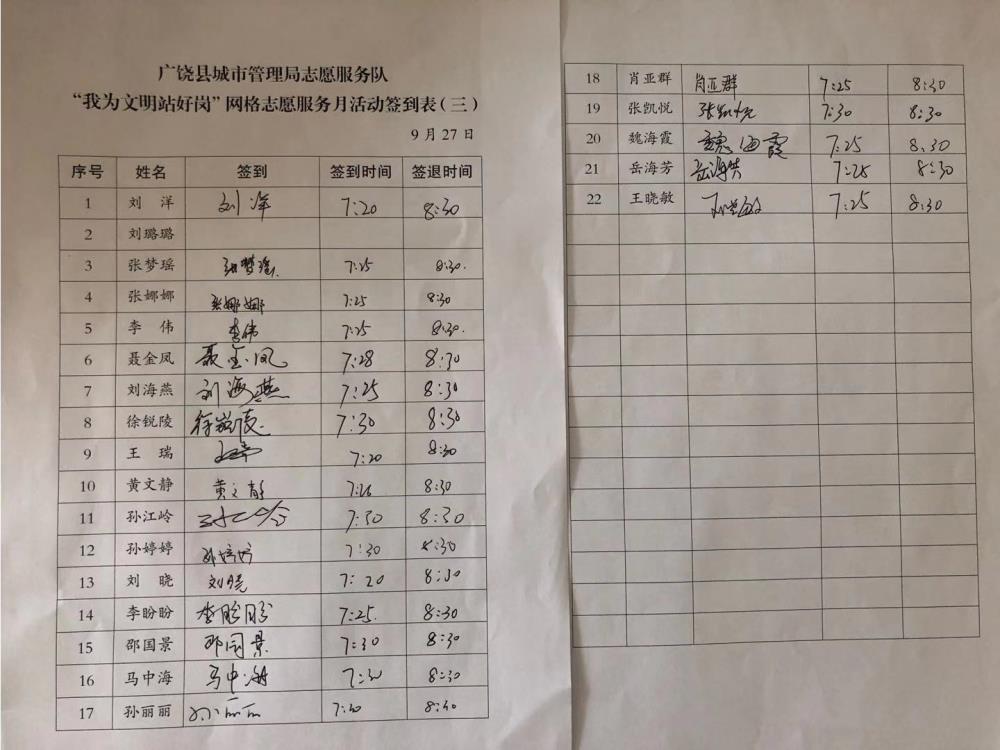 广饶县城市管理局志愿服务队
“我为文明站好岗”网格志愿服务月活动签到表（三）
9月27日
序号 姓名 签到 签到时间 签退时间
1 刘 洋 刘洋 7:20 8:30
2 刘璐璐
3 张梦瑶 张梦瑶 7:25 8:30.
4 张娜娜 张娜娜 7:25 8:30
5 李 伟 李伟 7:25 8:30.
6 聂金凤 聂金凤 7:28 8:30
7 刘海燕 刘海燕 7:25 8:30
8 徐锐陵 徐锐陵 7:30 8:30
9 王 瑞 7:20 8:30
10 黄文静 黄文静 7:26 8:30
11 孙江岭 孙江岭 7:30 8:30
12 孙婷婷 孙婷婷 7:30 8:30
13 刘 晓 刘晓 7:20 8:30
14 李盼盼 李盼盼 7:25. 8:30
15 邵国景 邵国景 7:30 8:30
16 马中海 马中海 7:30 8:30
17 孙丽丽 孙丽丽 7:30 8:30
18 肖亚群 肖亚群 7:25 8:30
19 张凯悦 张凯悦 7:30 8:30
20 魏海霞 魏海霞 7:25 8:30
21 岳海芳 岳海芳 7:25 8:30
22 王晓敏 王晓敏 7:25 8:30